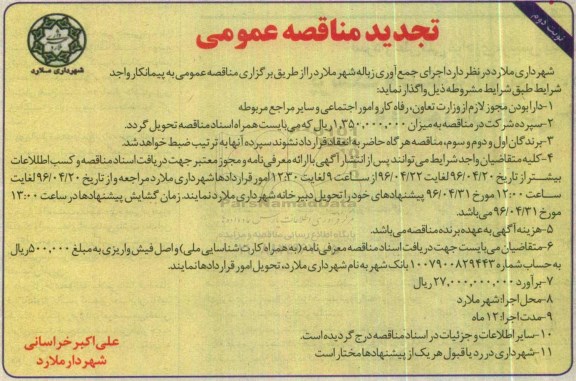 نوبت دوم
تجدید مناقصه عمومی
شهرداری ملارد
شهرداری ملارد در نظر دارد اجرای جمع آوری زباله شهر ملارد را از طریق برگزاری مناقصه عمومی به پیمانکار واجد
شرایط طبق شرایط مشروطه ذیل واگذار نماید:
۱-دارا بودن مجوز لازم از وزارت تعاون، رفاه کار و امور اجتماعی و سایر مراجع مربوطه
۲-سپرده شرکت در مناقصه به میزان ۱,۳۵۰,۰۰۰,۰۰۰ ریال که می بایست همراه اسناد مناقصه تحویل گردد.
۳-برندگان اول و دوم و سوم، مناقصه هر گاه حاضر به انعقاد قرارداد نشوند سپرده آنها به ترتیب ضبط خواهد شد.
۴-کلیه متقاضیان واجد شرایط می توانند پس از انتشار آگهی با ارائه معرفی نامه و مجوز معتبر جهت دریافت اسناد مناقصه و کسب اطلاعات
بیشتر از تاریخ ۹۶/۰۴/۲۰ لغایت ۹۶/۰۴/۲۲ از ساعت ۹ لغایت ۱۲:۳۰ امور قراردادها شهرداری ملارد مراجعه و از تاریخ ۹۶/۰۴/۲۰ لغایت
ساعت ۱۲:۰۰ مورخ ۹۶/۰۴/۳۱ پیشنهادهای خود را تحویل دبیرخانه شهرداری ملارد نمایند. زمان گشایش پیشنهادها در ساعت ۱۳:۰۰
مورخ ۹۶/۰۴/۳۱ می باشد.
۵-هزینه آگهی به عهده برنده مناقصه می باشد.
۶-متقاضیان می بایست جهت دریافت اسناد مناقصه معرفی نامه (به همراه کارت شناسایی ملی) و اصل فیش واریزی به مبلغ ۵۰۰,۰۰۰ ریال
به حساب شماره ۱۰۰۷۹۰۰۸۲۹۴۴۳ بانک شهر به نام شهرداری ملارد، تحویل امور قراردادها نمایند.
۷-برآورد ۲۷,۰۰۰,۰۰۰,۰۰۰ ریال
۸-محل اجرا: شهر ملارد
۹-مدت اجرا: ۱۲ ماه
۱۰-سایر اطلاعات و جزئیات در اسناد مناقصه درج گردیده است.
۱۱-شهرداری در رد یا قبول هر یک از پیشنهادها مختار است
علی اکبر خراسانی
شهردار ملارد